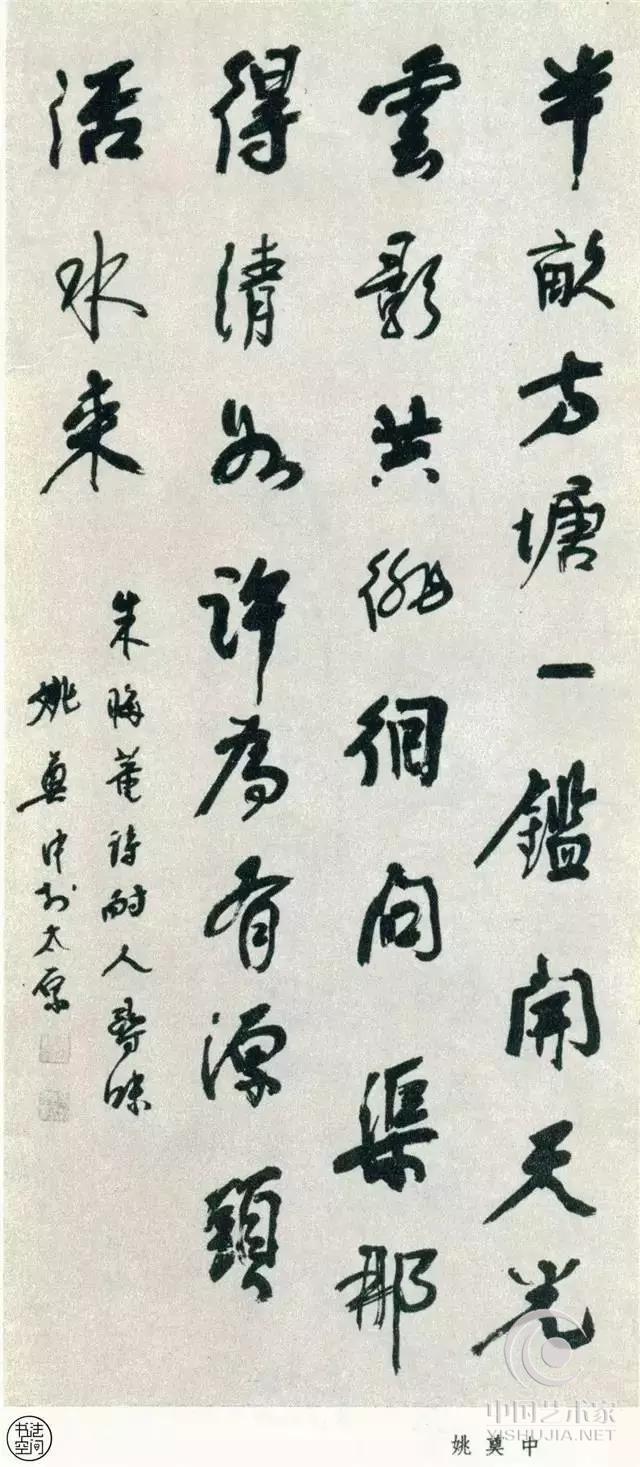 半畝方塘一鑑開天光
雲影共徘徊問渠那
得清如許為有源頭
活水来
朱晦菴詩耐人尋味
姚奠中於太原
姚奠中
书法空间
中国艺术家
YISHUJIA.NET